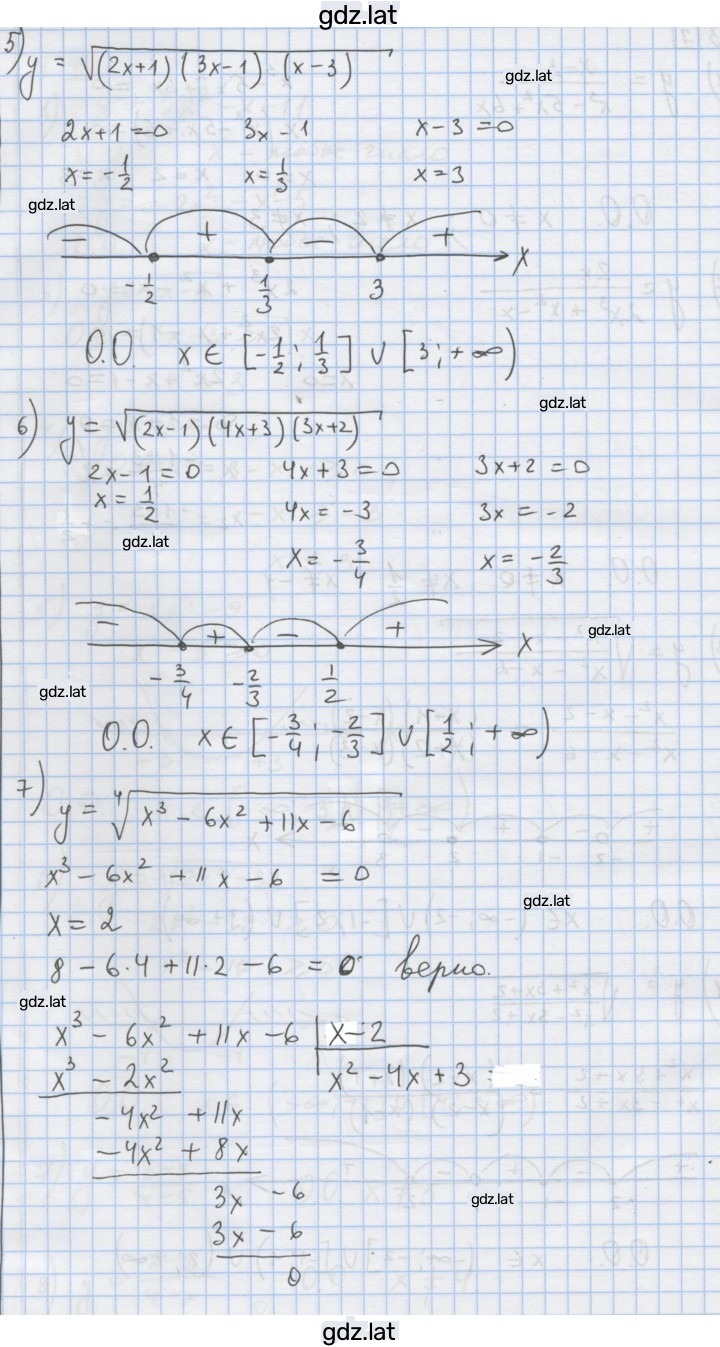 gdz.lat
5) y = √(2x+1)(3x-1)(x-3)
gdz.lat
2x+1=0 3x-1 x-3=0
x=-1/2 x=1/3 x=3
gdz.lat
- + - + x
-1/2 1/3 3
О.О. x ∈ [-1/2; 1/3] ∪ [3; +∞)
gdz.lat
6) y = √(2x-1)(4x+3)(3x+2)
2x-1=0 4x+3=0 3x+2=0
x=1/2 4x=-3 3x=-2
gdz.lat
x=-3/4 x=-2/3
- + - + x
gdz.lat
-3/4 -2/3 1/2
gdz.lat
О.О. x ∈ [-3/4; -2/3] ∪ [1/2; +∞)
7) y = ⁴√x³-6x²+11x-6
x³-6x²+11x-6=0
gdz.lat
x=2
8-6·4+11·2-6=0 верно.
gdz.lat
x³-6x²+11x-6 | x-2
x³-2x² x²-4x+3
-4x²+11x
-4x²+8x
3x-6
gdz.lat
3x-6
0
gdz.lat